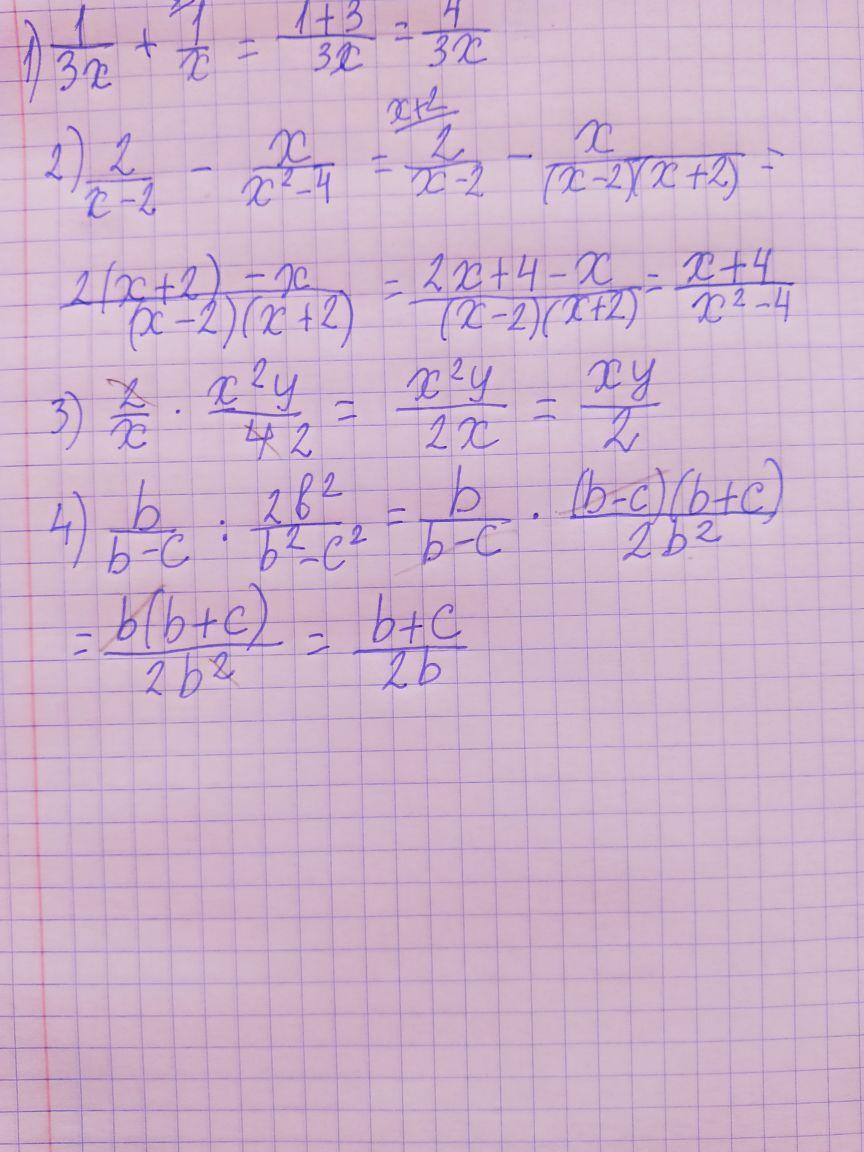 1) 1/3x + 1/x = 1+3/3x = 4/3x
2) 2/x-2 - x/x²-4 = x+2 2/x-2 - x/(x-2)(x+2) =
2(x+2)-x/(x-2)(x+2) = 2x+4-x/(x-2)(x+2) = x+4/x²-4
3) 2/x · x²y/4 2 = x²y/2x = xy/2
4) b/b-c : 2b²/b²-c² = b/b-c · (b-c)(b+c)/2b²
= b(b+c)/2b² = b+c/2b